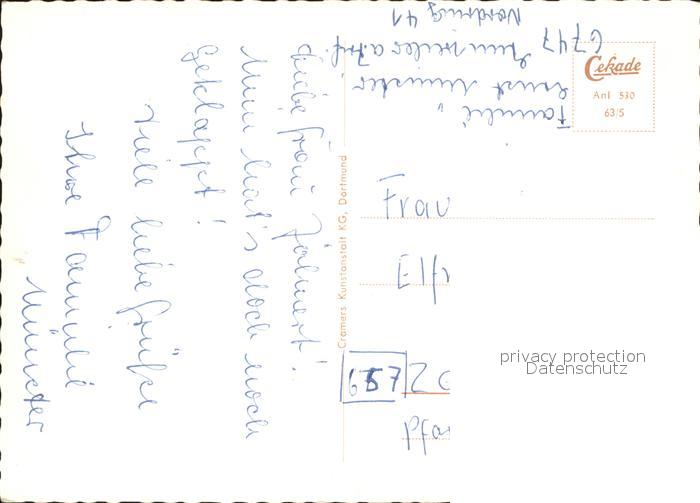 Liebe Frau
Nun hat's doch noch
geklappt!
Viele liebe Grüße
Ihre Familie
Münster
Familie
Ernst Münster
6747
Nordring 41
Cekade
Anl 530
63/5
Cramers Kunstanstalt KG, Dortmund
Frau
Elfr
657
Pfar
privacy protection
Datenschutz